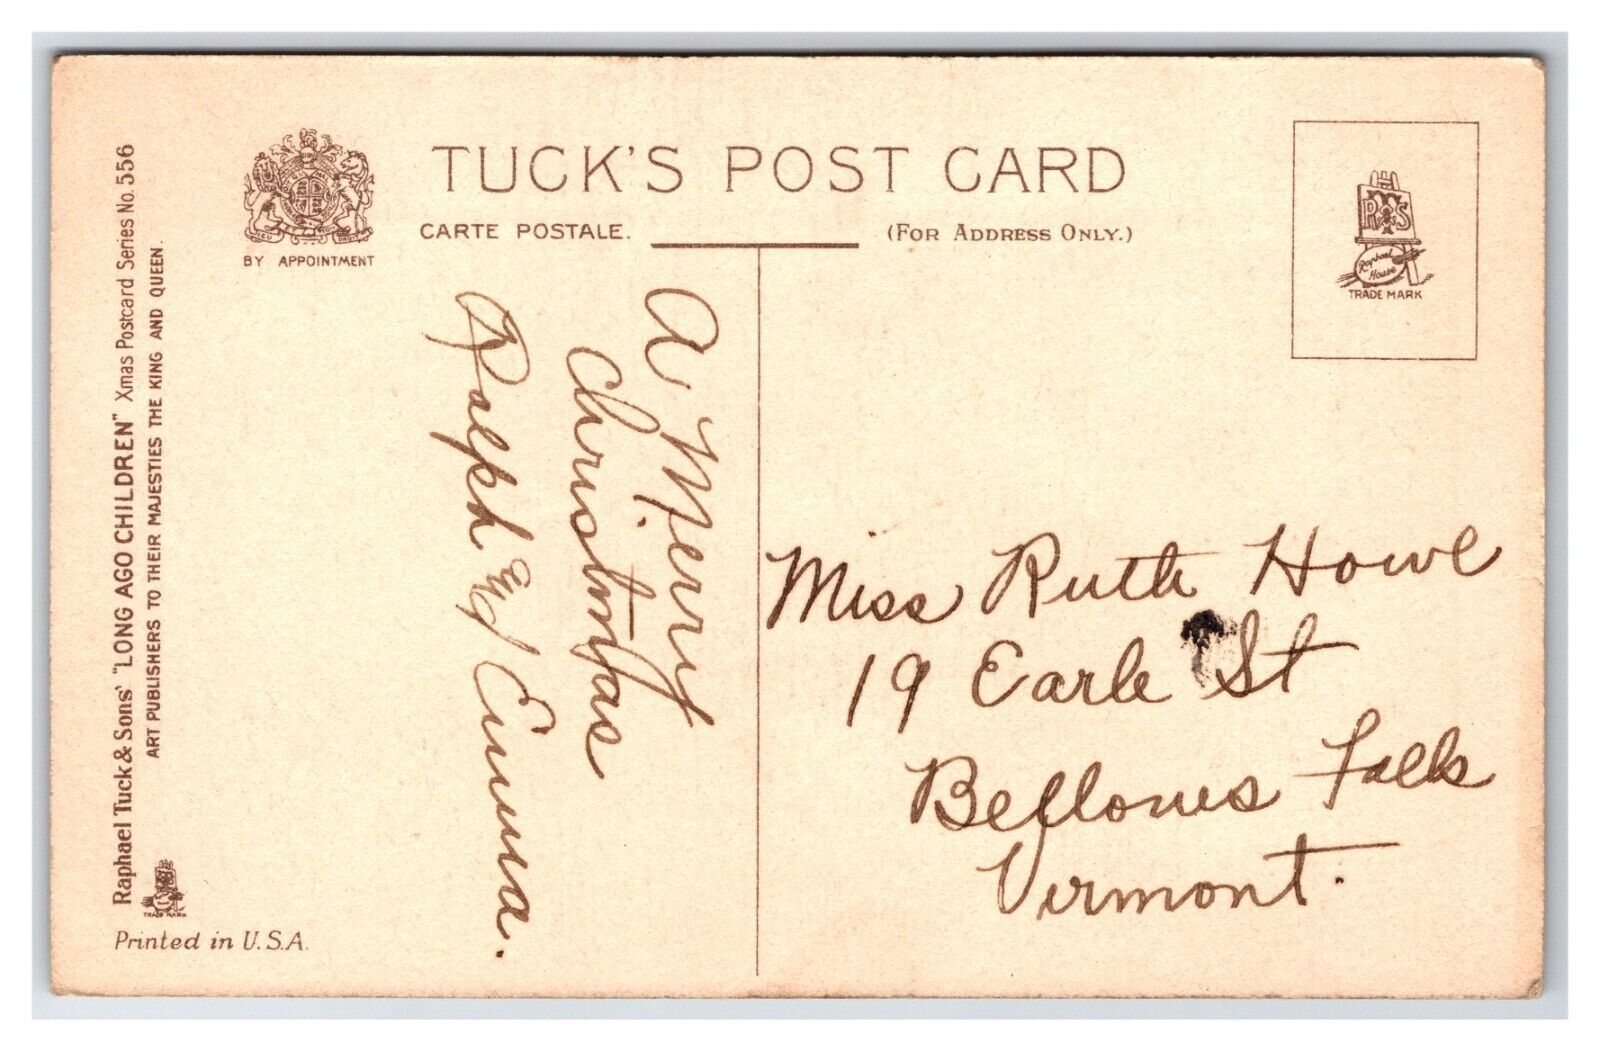 TUCK'S POST CARD
CARTE POSTALE.
(FOR ADDRESS ONLY.)
BY APPOINTMENT
R T & S
Raphael House
TRADE MARK
Raphael Tuck & Sons' "LONG AGO CHILDREN" Xmas Postcard Series No. 556
ART PUBLISHERS TO THEIR MAJESTIES THE KING AND QUEEN.
TRADE MARK
Printed in U.S.A.
A Merry
Christmas
Ralph and Emma.
Miss Ruth Howe
19 Earle St
Bellows Falls
Vermont.